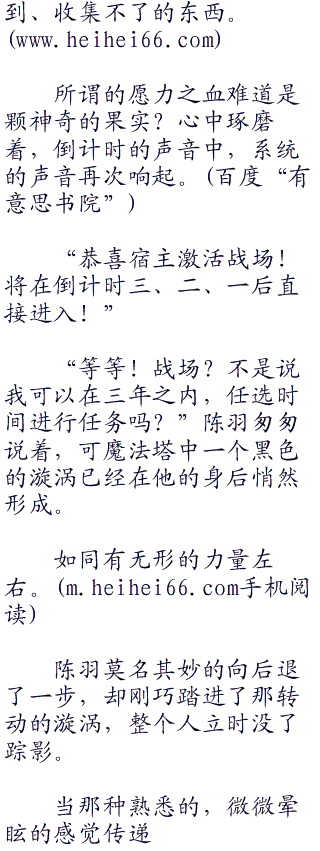 到、收集不了的东西。
(www.heihei66.com)
所谓的愿力之血难道是
颗神奇的果实？心中琢磨
着，倒计时的声音中，系统
的声音再次响起。(百度“有
意思书院”)
“恭喜宿主激活战场！
将在倒计时三、二、一后直
接进入！”
“等等！战场？不是说
我可以在三年之内，任选时
间进行任务吗？”陈羽匆匆
说着，可魔法塔中一个黑色
的漩涡已经在他的身后悄然
形成。
如同有无形的力量左
右。(m.heihei66.com手机阅
读)
陈羽莫名其妙的向后退
了一步，却刚巧踏进了那转
动的漩涡，整个人立时没了
踪影。
当那种熟悉的，微微晕
眩的感觉传递